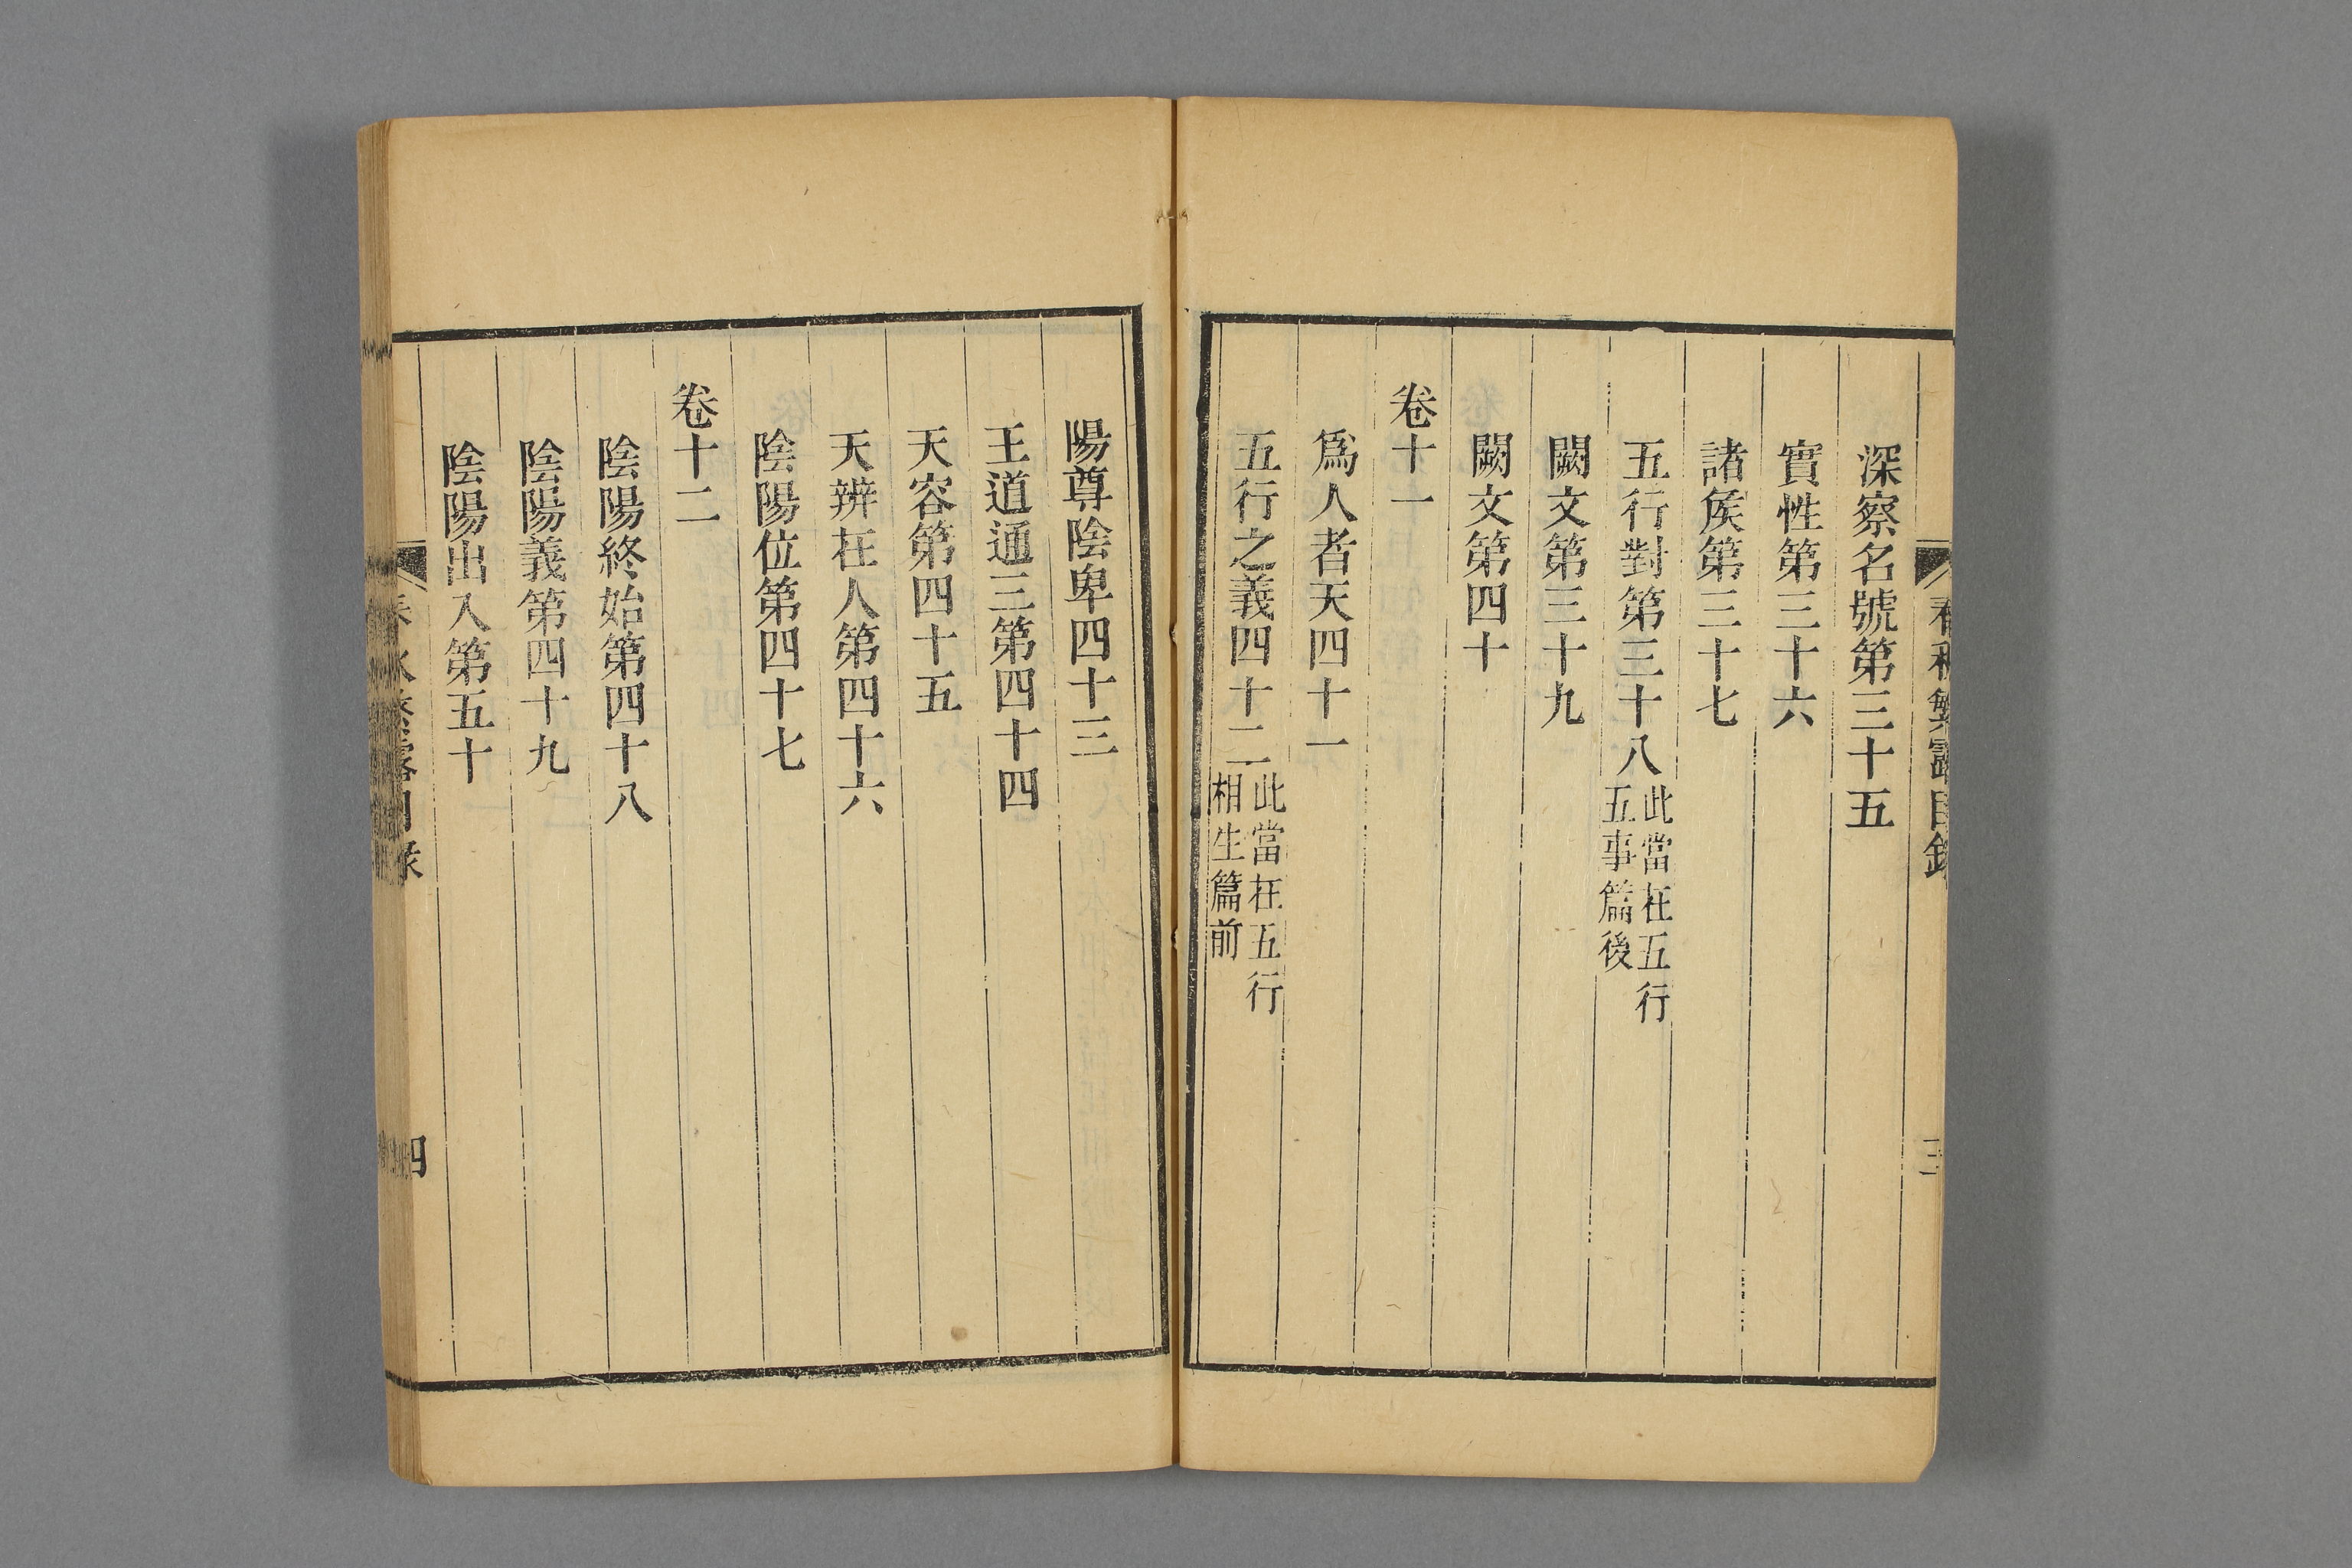 春秋繁露目錄
三
深察名號第三十五
實性第三十六
諸矦第三十七
五行對第三十八
此當在五行
五事篇後
闕文第三十九
闕文第四十
卷十一
爲人者天四十一
五行之義四十二
此當在五行
相生篇前
陽尊陰卑四十三
王道通三第四十四
天容第四十五
天辨在人第四十六
陰陽位第四十七
卷十二
陰陽終始第四十八
陰陽義第四十九
陰陽出入第五十
春秋繁露目錄
四